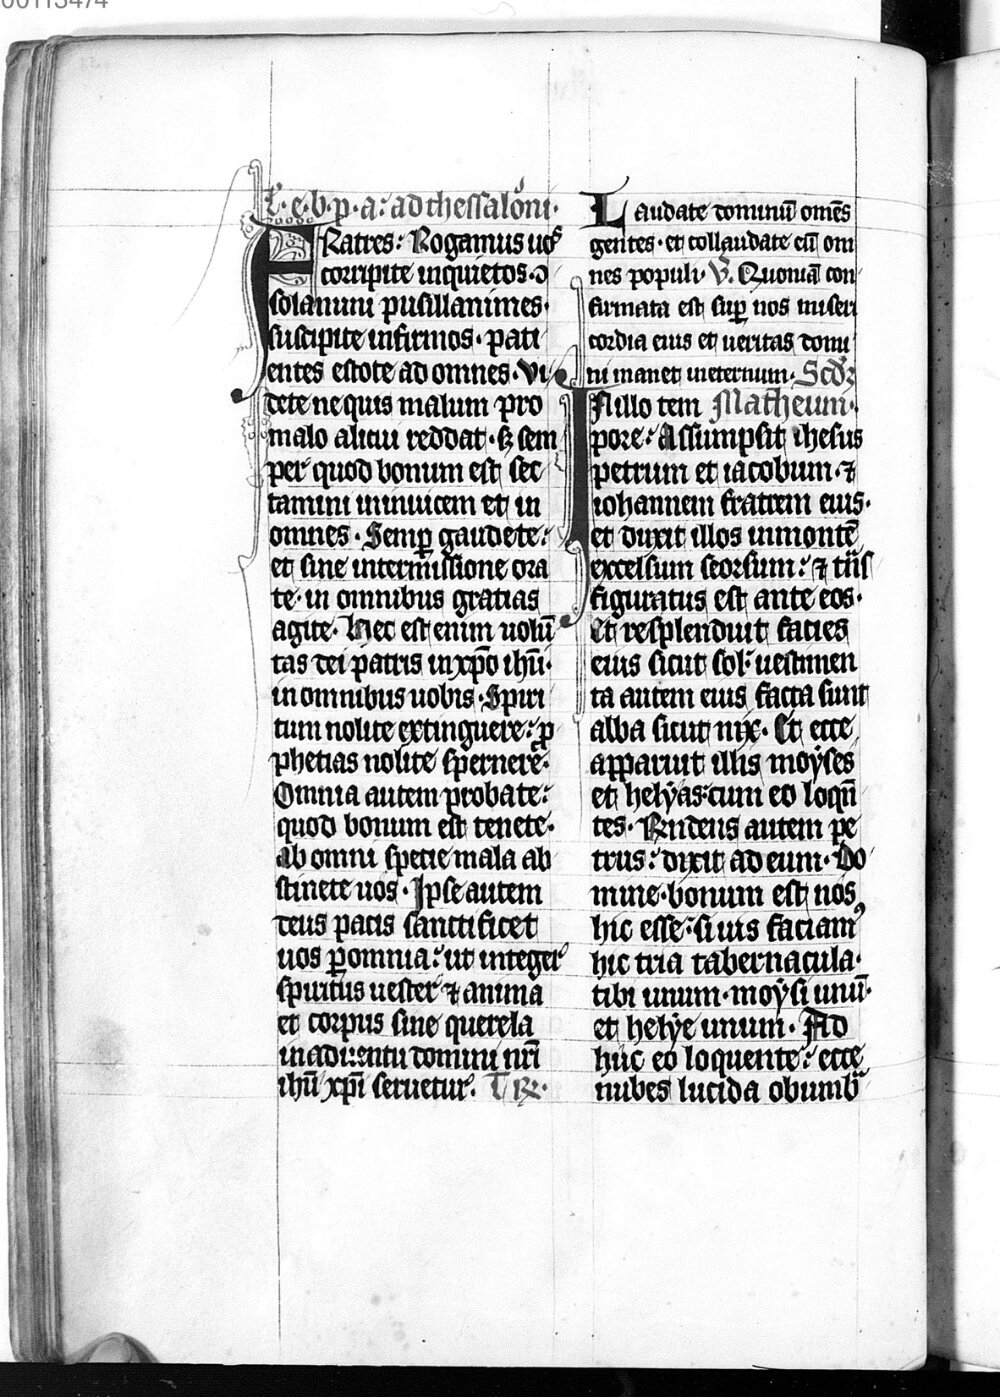 00113474
L. e. b. p. a: ad thessaloni.
FRatres: Rogamus uos
corripite inquietos. ↄ
solamini pusillanimes.
suscipite infirmos. pati
entes estote ad omnes. Vi
dete ne quis malum pro
malo alicui reddat. Sꝫ sem
per quod bonum est sec
tamini in inuicem et in
omnes. Semꝑ gaudete:
et sine intermissione ora
te. in omnibus gratias
agite. Hec est enim uolū
tas dei patris in xp̄o ihū.
in omnibus uobis. Spiri
tum nolite extinguere: ꝓ
phetias nolite spernere.
Omnia autem probate:
quod bonum est tenete.
Ab omni specie mala ab
stinete uos. Ipse autem
deus pacis sanctificet
uos ꝑ omnia: ut integer
spiritus uester ⁊ anima
et corpus sine querela
in aduentu domini nr̄i
ihū xp̄i seruetur. TR.
Laudate dominū omēs
gentes. et collaudate eū om
nes populi. V. Quoniā con
firmata est suꝑ nos miseri
cordia eius et ueritas domi
ni manet in eternum. Scd̄ꝫ
IN illo tem Matheum.
pore: Assumpsit ihesus
petrum et iacobum. ⁊
iohannem fratrem eius.
et duxit illos in montē
excelsum seorsum: ⁊ tn̄s
figuratus est ante eos.
Et resplenduit facies
eius sicut sol: uestimen
ta autem eius facta sunt
alba sicut nix. Et ecce
apparuit illis moyses
et helyas: cum eo loqn̄
tes. Rñdens autem pe
trus: dixit ad eum. Do
mine. bonum est nos
hic esse: si uis faciamꝰ
hic tria tabernacula.
tibi unum. moysi unū.
et helye unum. Ad
huc eo loquente: ecce
nubes lucida obumb̄